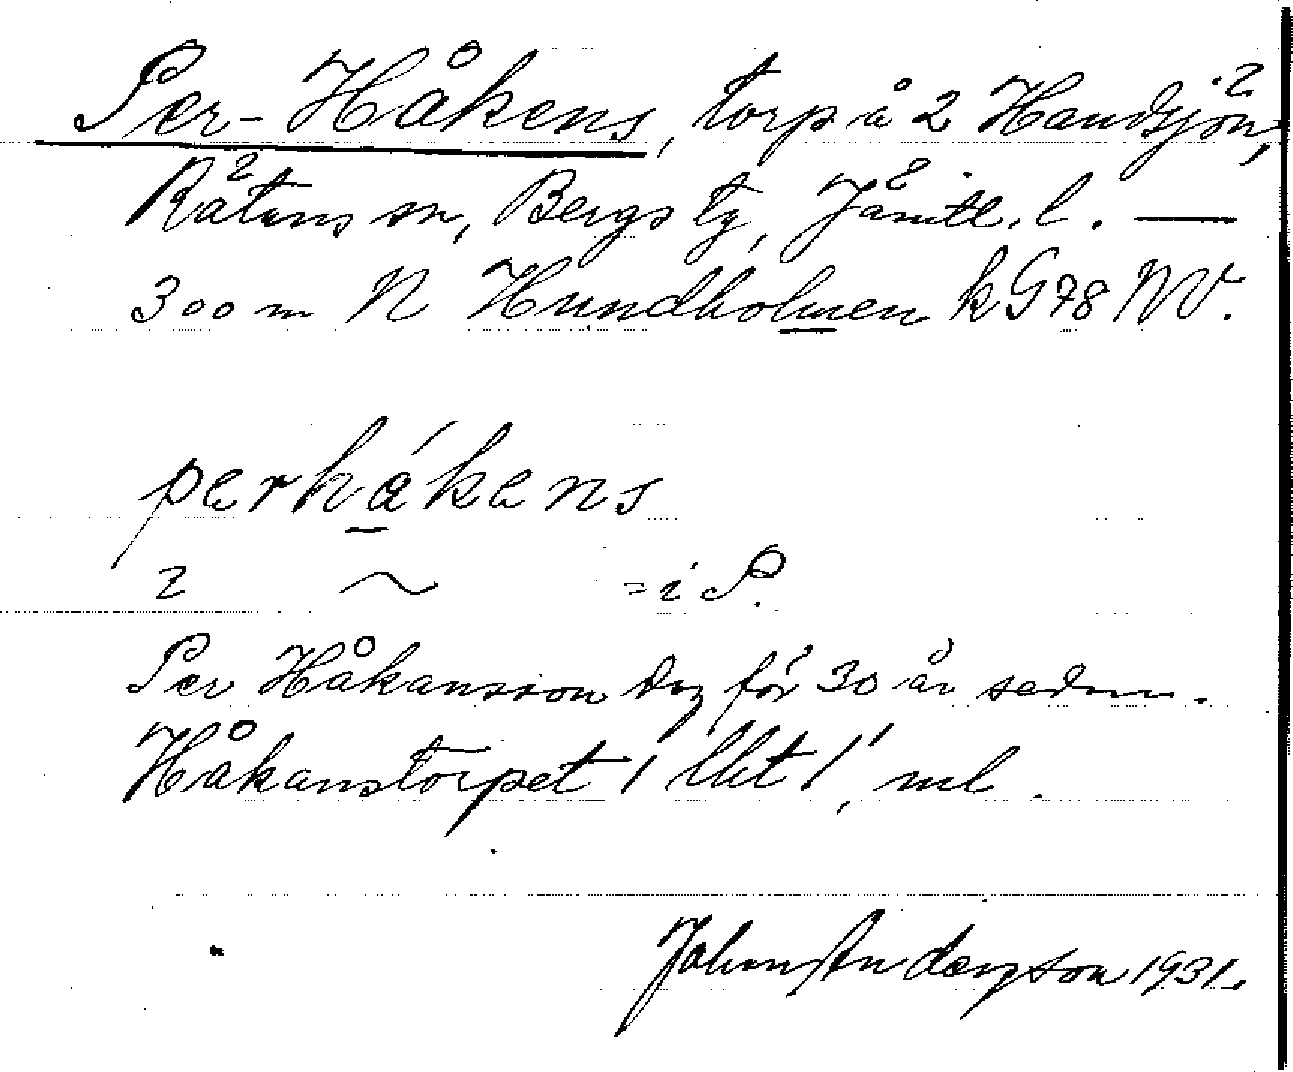 Per-Håkens, torp å 2 Handsjön,
Rätans sn, Bergs tg, Jämtl. l. —
300 m N Hundholmen k G 78 NV.
perhákens
2 ~ = i P.
Per Håkansson dog för 30 år sedan.
Håkanstorpet
John Andersson 1931.